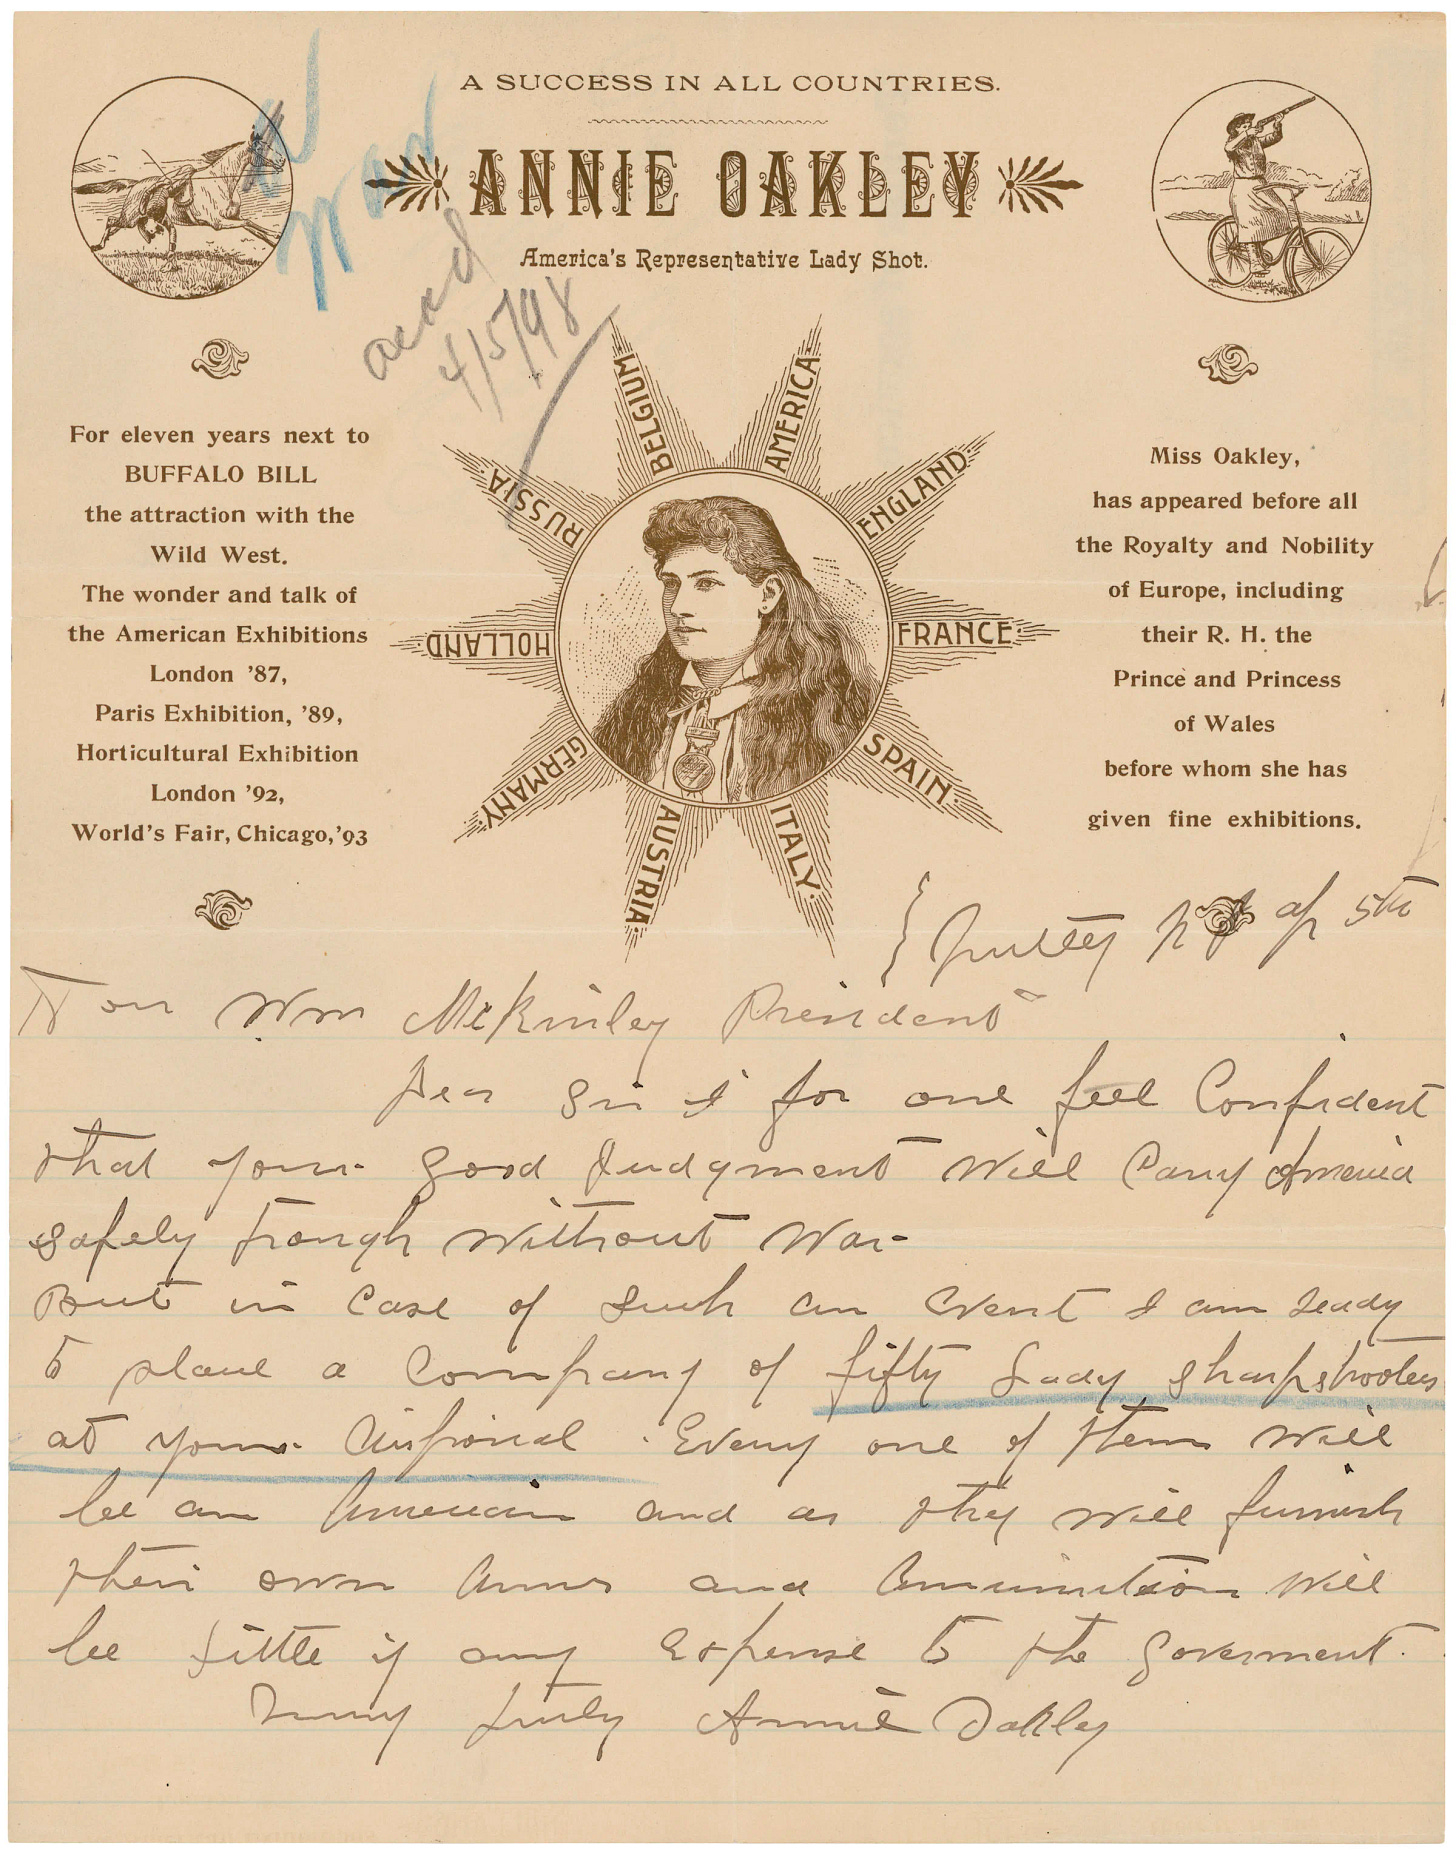 A SUCCESS IN ALL COUNTRIES.
ANNIE OAKLEY
America's Representative Lady Shot.
War
ackd
4/5/98
For eleven years next to
BUFFALO BILL
the attraction with the
Wild West.
The wonder and talk of
the American Exhibitions
London '87,
Paris Exhibition, '89,
Horticultural Exhibition
London '92,
World's Fair, Chicago, '93
BELGIUM
AMERICA
ENGLAND
FRANCE
SPAIN
ITALY
AUSTRIA
GERMANY
HOLLAND
RUSSIA
Miss Oakley,
has appeared before all
the Royalty and Nobility
of Europe, including
their R. H. the
Prince and Princess
of Wales
before whom she has
given fine exhibitions.
Nutley NJ ap 5th
Hon Wm McKinley President
Dear Sir I for one feel Confident
that your good Judgment will Carry America
safely trough without War-
But in Case of such an Event I am ready
to place a Company of fifty Lady sharpshooters
at your disposal. Every one of them will
be an American and as they will furnish
their own Arms and Ammunition will
be little if any expense to the Goverment.
Very truly Annie Oakley